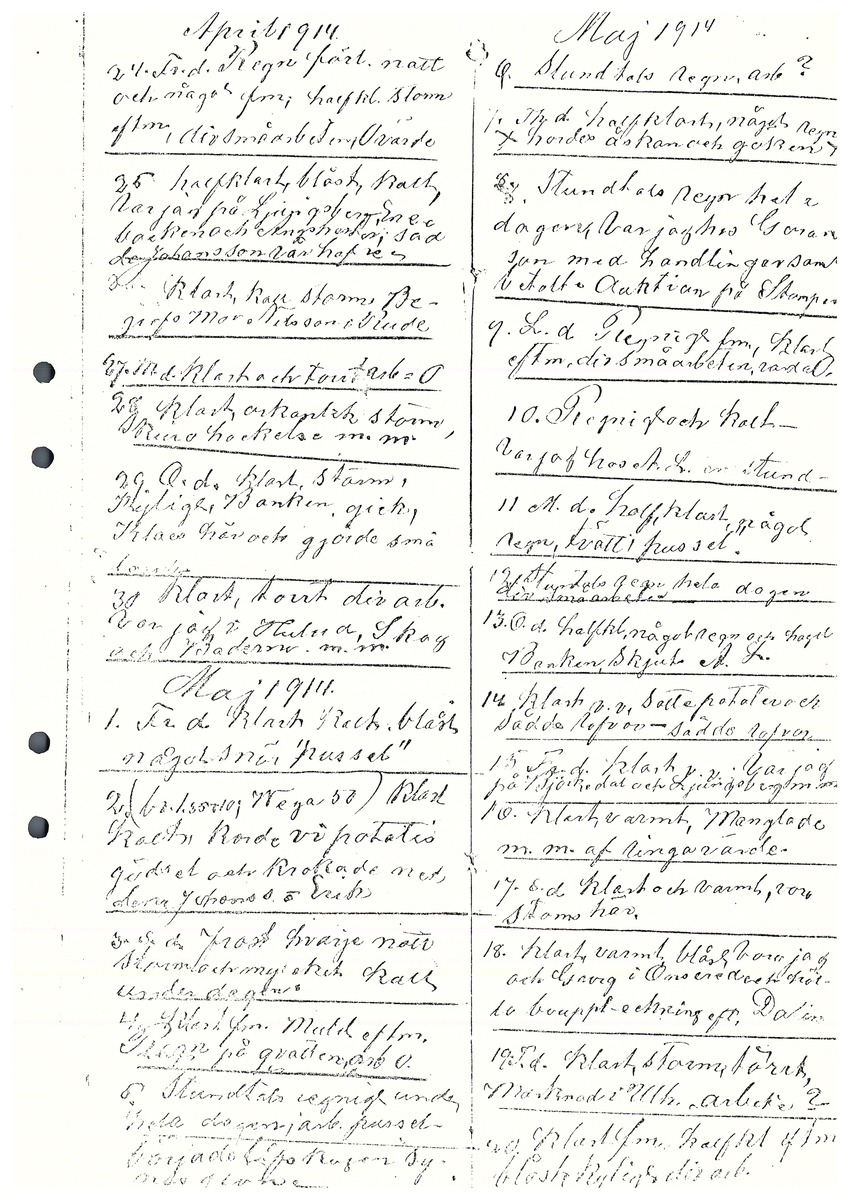 April 1914.
24. Fr.d. Regn förl. natt
och något fm, halfkl. storm
eftm, div småarbeten, 0 värde
25 halfklart, blåst, kallt,
var jag på Ljungsberg, Ene-
backen och Ängshester; såd
Johansson vår hafre
klart, kall storm, Be-
grofs Mor Nilsson i Rude
27. M.d. klart och torrt arb = 0
28 klart, orkanlik storm,
Skuro hackelse m.m.
29 O.d. klart, storm,
kyligt, Banken, gick,
Klaes här och gjorde små
30 klart, torrt div arb.
Var jag i Hulu d, Skog
och Baderna m.m.
Maj 1914.
1. Fr d klart kallt blåst
något snö "pussel"
2 Wega 50) klart
kallt, körde vi potatis
gödsel och krokade ned,
Johanss. o Erik
3. S.d. Frost hvarje natt
storm och mycket kall
under dagen
4. klart fm. Muld eftm.
Regn på qvällen, arb 0.
5. Stundtals regnigt under
hela dagen, arb. pussel-
började
Maj 1914
6. Stundtals regn, arb ?
7. Th d. halfklart, något regn
x hördes åskan och göken
8. Stundtals regn hela
dagen, var jag hos Goran
son med handlingar som
Auktion på Stampen
9. L. d Regnigt fm, klart
eftm, div småarbeten, värde 0.
10. Regnigt och kallt—
var jag hos A. L. en stund—
11 M. d. halfklart, något
regn, tvätt "pussel".
12 Stundtals regn hela dagen
div småarbeten
13. O. d. halfkl, något regn och hagel
Banken, skjuts A. L.
14 klart v.v, satte potater och
sådde rofvor — sådde rofvor
15 Fr. d. klart v.v. var jag
på Björkedal och Ljungsberg m.m
16. klart, varmt, Manglade
m. m. af ringa värde.
17. S. d klart och varmt, voro
Stoms här.
18. klart, varmt, blåst, voro jag
och Georg i Onsered och höl-
lo bouppteckning eft.
19. T.d. klart, storm, törrt,
Marknad i Ulh. arbete ?
20. klart fm. halfkl eftm
blåst kyligt div arb.